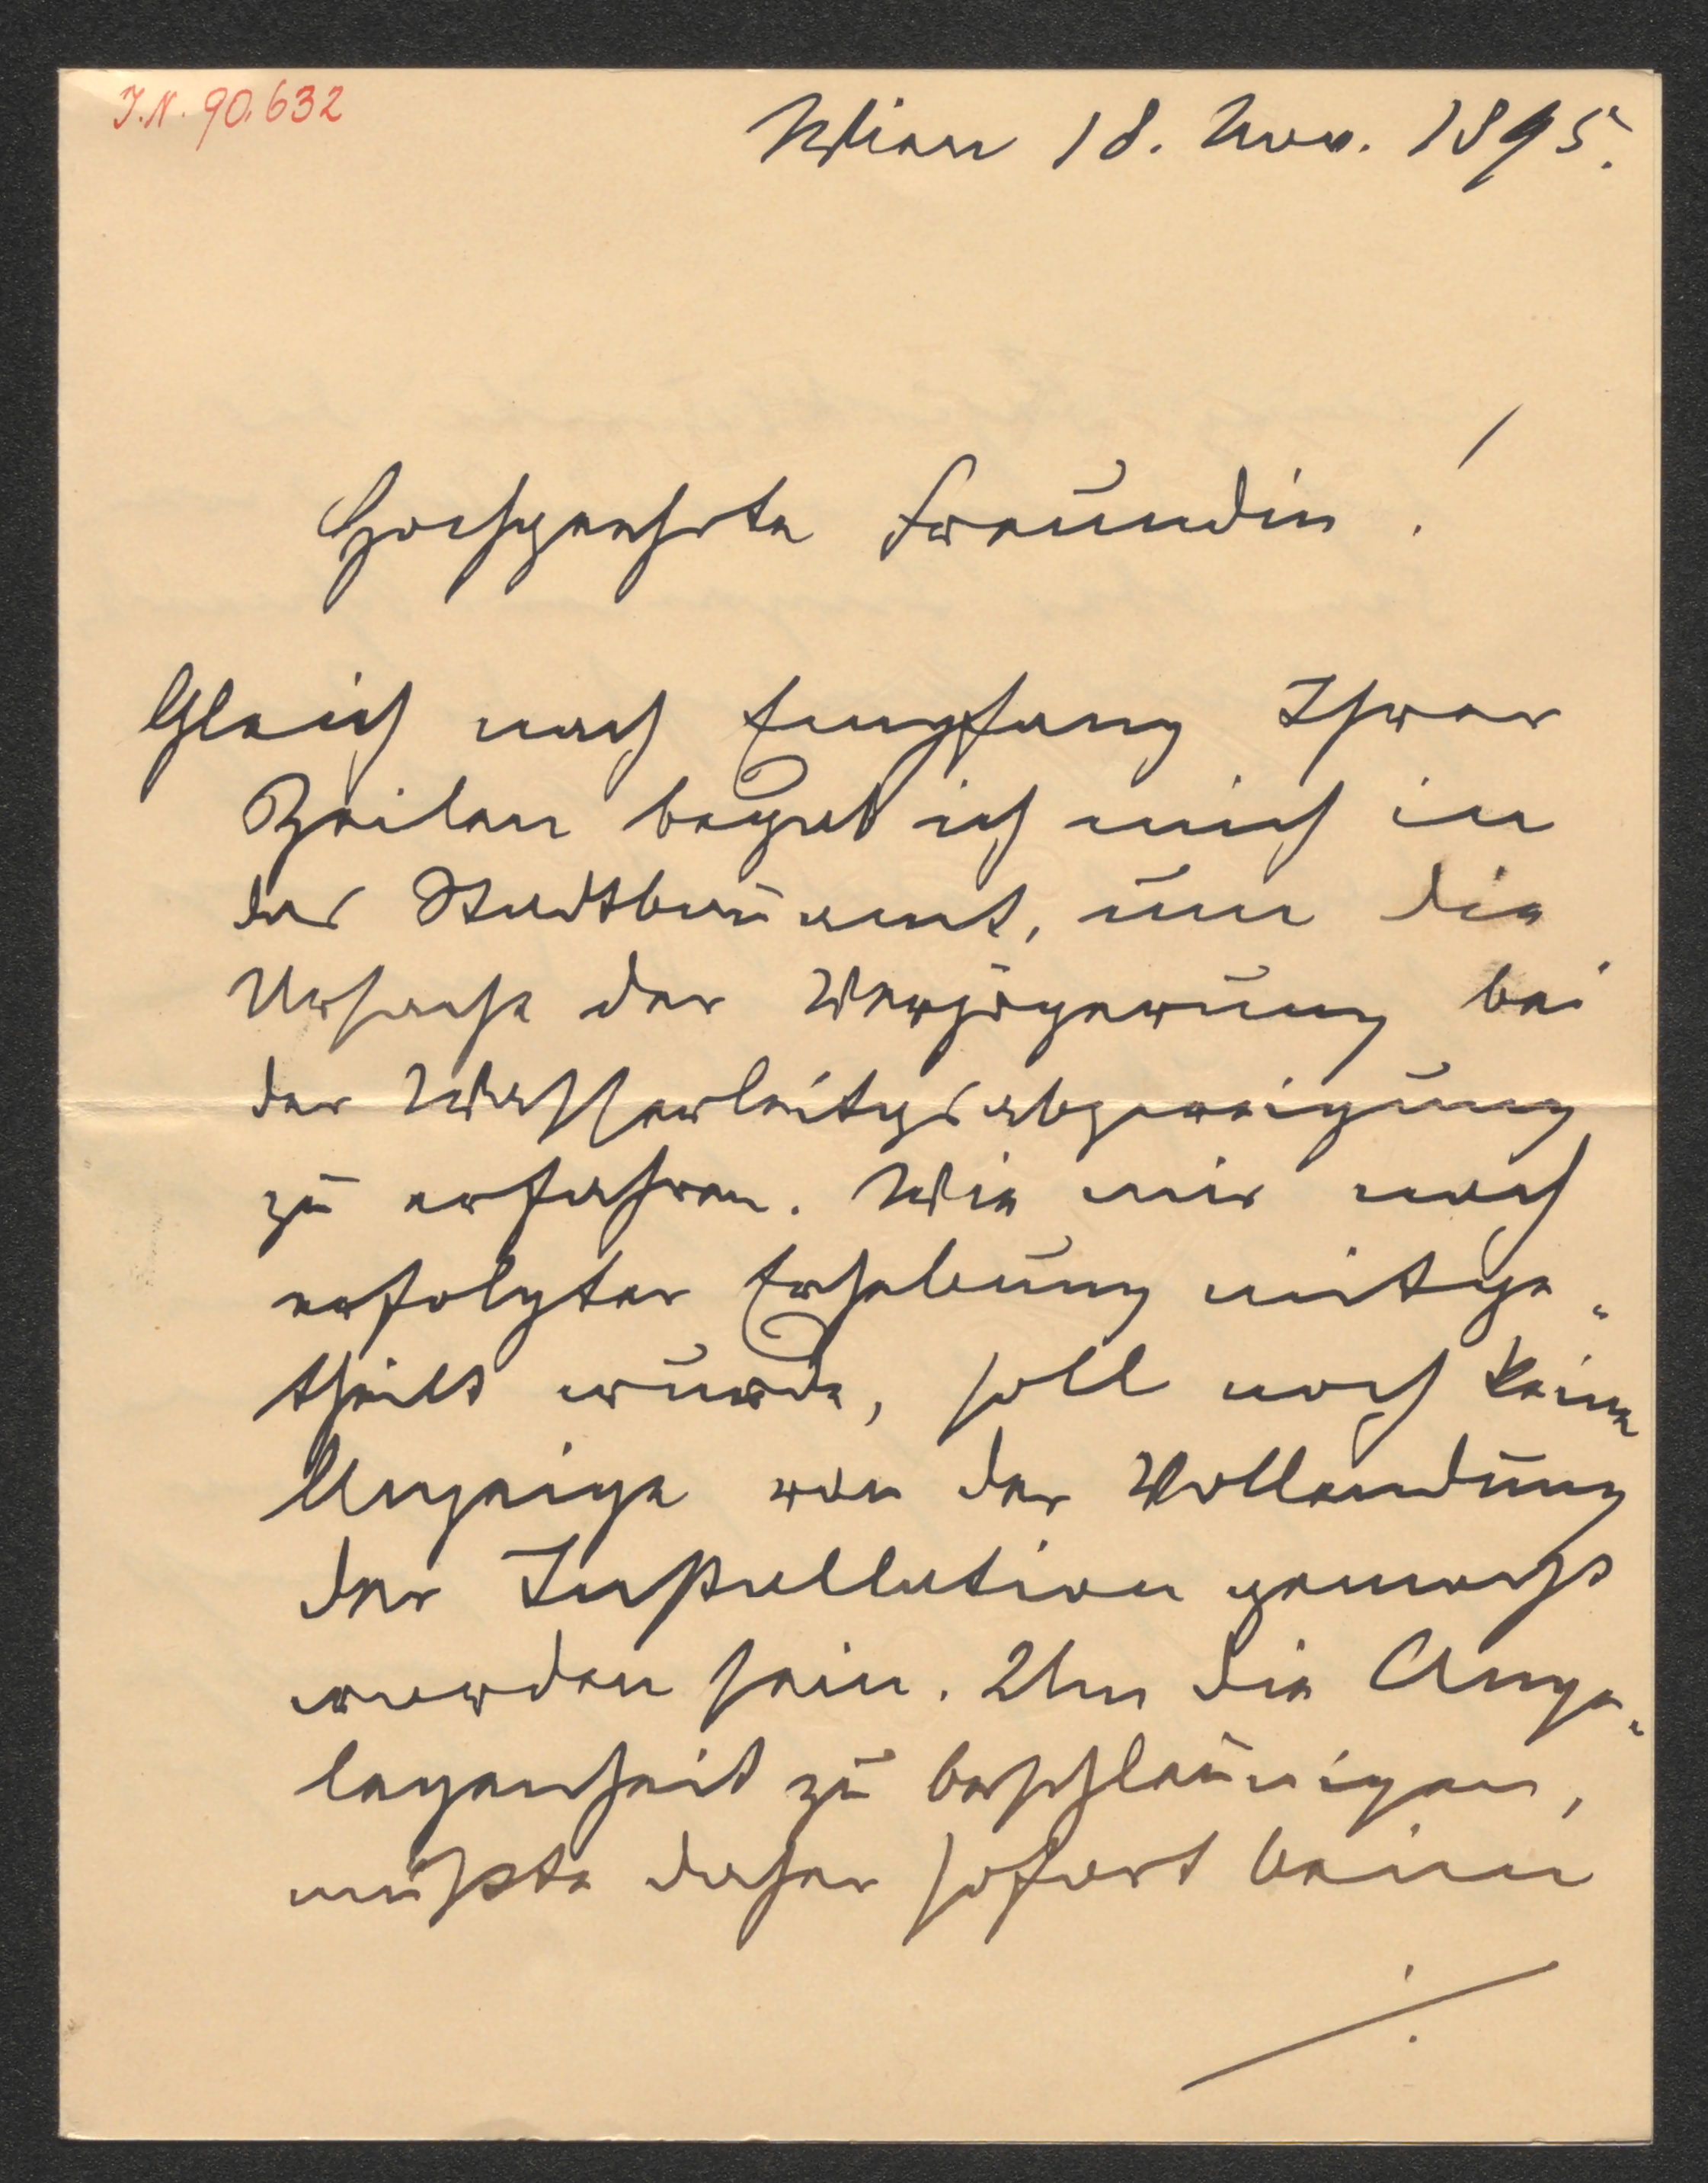 I.N. 90.632
Wien 18. Nov. 1895.
Hochgeehrte Freundin!
Gleich nach Empfang Ihrer
Zeilen begab ich mich in
das Stadtbauamt, um die
Ursache der Verzögerung bei
der Wasserleitgsabzweigung
zu erfahren. Wie mir nach
erfolgter Erhebung mitge„
theilt wurde, soll noch keine
Anzeige von der Vollendung
der Installation gemacht
worden sein. Um die Ange„
legenheit zu beschleunigen,
müsste daher sofort beim
./.